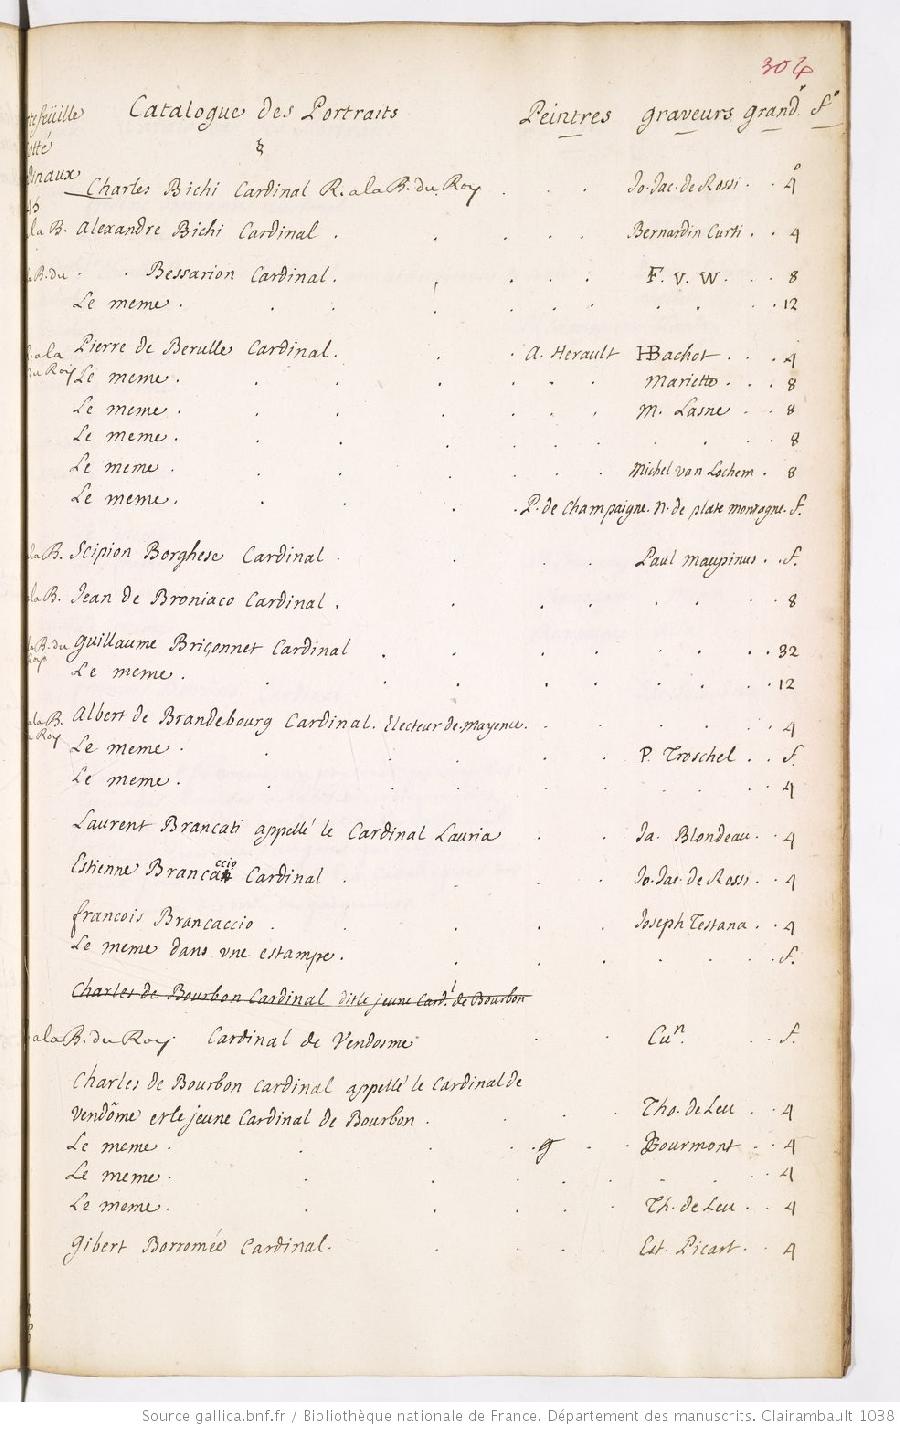 304
Catalogue des Portraits Peintres graveurs grand.r f.o
Charles Bichi Cardinal R. a la B. du Roy . . . Jo. Jac. de Rossi . . 4o
la B. Alexandre Bichi Cardinal . . . . . Bernardin Curti . . 4
B. du . . Bessarion Cardinal . . . . . F. V. W. . . 8
Le meme . . . . . . . . 12
a la Pierre de Berulle Cardinal . . . A. Herault HBachot . . . 4
du Roy Le meme . . . . . . . Mariette . . . 8
Le meme . . . . . . . M. Lasne . . 8
Le meme . . . . . . . . . 8
Le meme . . . . . . . Michel van Lochem . 8
Le meme . . . . . P. de Champaigne. N. de plate montagne. f.
la B. Scipion Borghese Cardinal . . . . Paul maupinus . . f.
la B. Jean de Broniaco Cardinal . . . . . . . 8
B. du Guillaume Briçonnet Cardinal . . . . . . . . 32
Roy Le meme . . . . . . . . . 12
a la B. Albert de Brandebourg Cardinal. Electeur de mayence . . . . . 4
Roy Le meme . . . . . . P. Troschel . . f.
Le meme . . . . . . . . . 4
Laurent Brancati appellé le Cardinal Lauria . . Ja. Blondeau . . 4
Estienne Brancaccio Cardinal . . . . Jo. Jac. de Rossi . . 4
françois Brancaccio . . . . . Joseph Testana . . 4
Le meme dans une estampe . . . . . . . f.
Charles de Bourbon Cardinal dit le jeune Card.l de Bourbon
a la B. du Roy. Cardinal de Vendosme . . Cun. . . f.
Charles de Bourbon Cardinal appellé le Cardinal de
Vendôme et le jeune Cardinal de Bourbon . . . . Tho. de Leu . . 4
Le meme . . . . g . Bourmont . . 4
Le meme . . . . . . . . 4
Le meme . . . . . . Th. de Leu . . 4
Gibert Borromée Cardinal . . . . Est. Picart . . 4
Source gallica.bnf.fr / Bibliothèque nationale de France. Département des manuscrits. Clairambault 1038